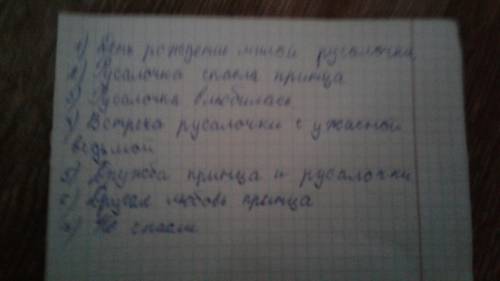 1) День рождение милой русалочки
2) Русалочка спасла принца
3) Русалочка влюбилась
4) Встреча русалочки с ужасной
ведьмой
5) Дружба принца и русалочки
6) Другая любовь принца
7) Не спасли